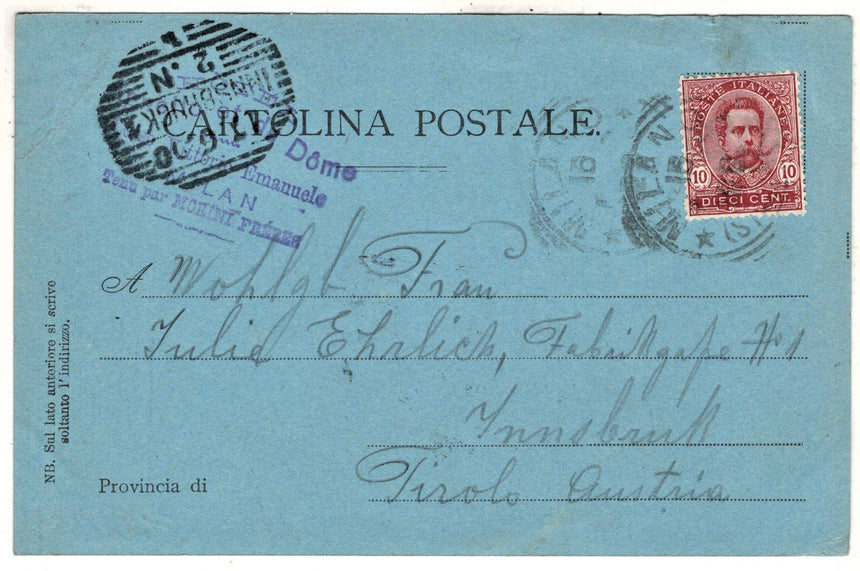 CARTOLINA POSTALE.
POSTE ITALIANE
10 10
DIECI CENT.
MILANO
18
MILANO
18
INNSBRUCK 1
2.N
Dôme
Emanuele
MILAN
Tenu par MORINI FRÈRES
A Wohlgb Frau
Julie Ehrlich, Fabrikgaße No 1
Innsbruk
Provincia di
Tirolo Austria
NB. Sul lato anteriore si scrive
soltanto l'indirizzo.